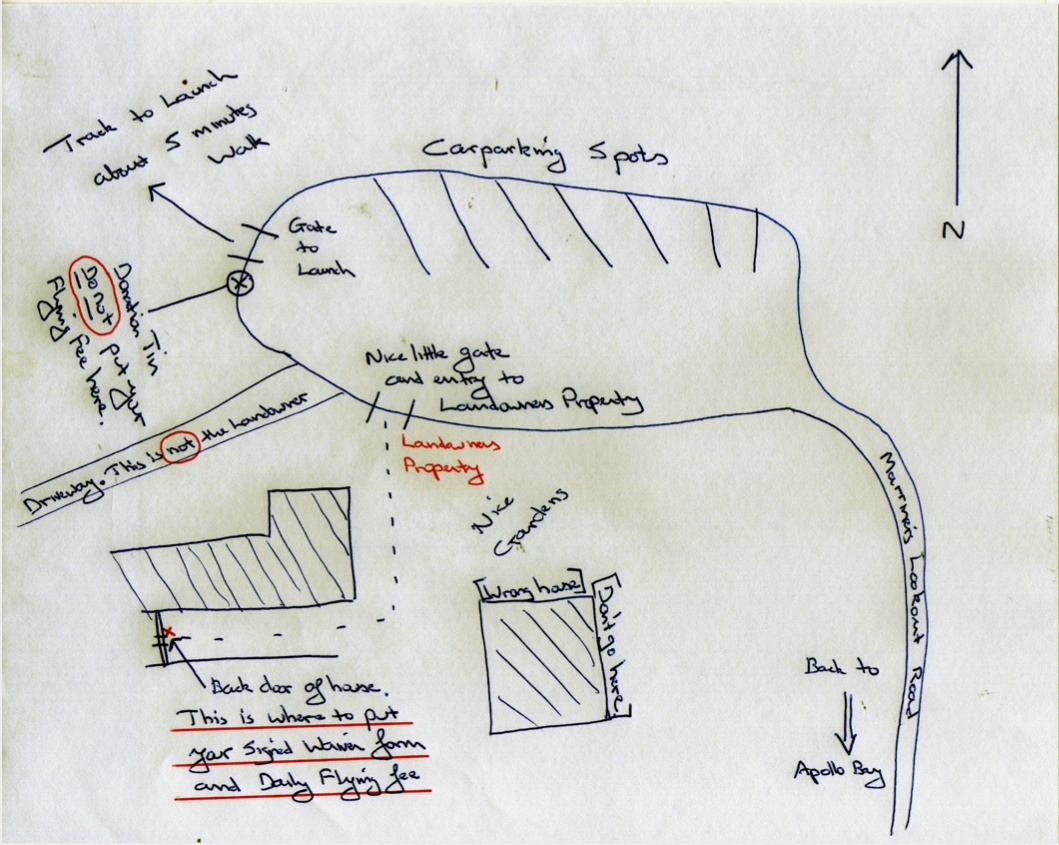 Track to Launch
about 5 minutes
Walk
Carparking Spots
N
Gate
to
Launch
Donation Tin
Do not put your
Flying Fee here.
Nice little gate
and entry to
Landowners Property
Landowners
Property
Driveway. This is not the Landowner
Nice
Gardens
[Wrong house]
[Don't go here]
Marriners Lookout Road
Back to
Apollo Bay
Back door of house.
This is where to put
your Signed Waiver form
and Daily Flying fee